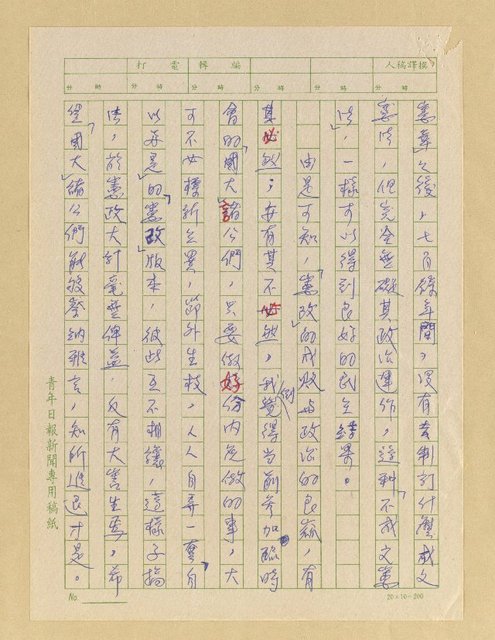 打電 輯編 人稿譯撰
分 時 分 時 分 時 分 時
憲草」之後，七百餘年間，沒有專制訂什麼成文
憲法，但完全無礙其政治運作，這種「不成文憲
法」，一樣可以得到良好的民主結果。
由是可知，「憲改」的成敗與政治的良窳，有
其必然，亦有其不必然，我倒覺得當前參加臨時
會的國大諸公們，只要做好份內免做的事，大
可不必標新立異，節外生枝，人人自弄一套「自
以為是」的「憲改」版本，彼此互不相讓，這樣子搞
法，於憲政大計毫無俾益，反有大害生焉，希
望國大「諸公們」能敬聆納雅言，知所進退才是。
青年日報新聞專用稿紙
No.
20×10=200